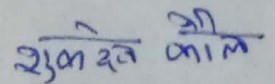 शुकदेव कौल